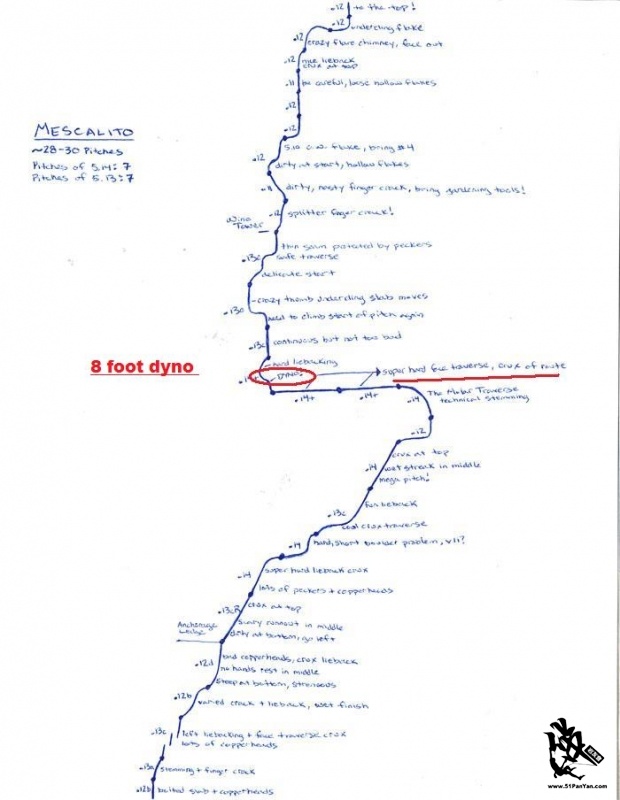 .12
to the top!
.12
undercling flake
.12
crazy flare chimney, face out
.12
nice lieback
crux at top
.11
be careful, loose hollow flakes
.12
.12
5.10 o.w. flake, bring #4
.12
dirty at start, hollow flakes
.11
dirty, nasty finger crack, bring gardening tools!
.12
splitter finger crack!
Wino
Tower
thin seam protected by peckers
.13c
safe traverse
delicate start
.13c
crazy thumb undercling slab moves
need to climb start of pitch again
.13c
continuous but not too bad
hard liebacking
8 foot dyno
DYNO!
super hard face traverse, crux of route
.14+
.14+
.14
The Molar Traverse
technical stemming
.12
crux at top
.14
wet streak in middle
mega pitch!
.13c
fun lieback
cool crux traverse
.14
hard, short boulder problem, V11?
.14
super hard lieback crux
lots of peckers + copperheads
.13cR
crux at top
scary runout in middle
Anchorage
Ledge
dirty at bottom, go left
.12d
bad copperheads, crux lieback
no hands rest in middle
.12b
steep at bottom, strenuous
varied crack + lieback, wet finish
.13c
left liebacking + face traverse crux
lots of copperheads
.13a
stemming + finger crack
.12b
bolted slab + copperheads
MESCALITO
~28-30 Pitches
Pitches of 5.14: 7
Pitches of 5.13: 7
www.51PanYan.com